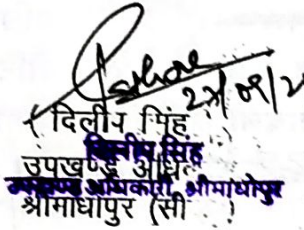 27/09/2
( दिलीप सिंह
दिलीप सिंह
उपखण्ड अधि
उपखण्ड अधिकारी, श्रीमाधोपुर
श्रीमाधोपुर (सी )